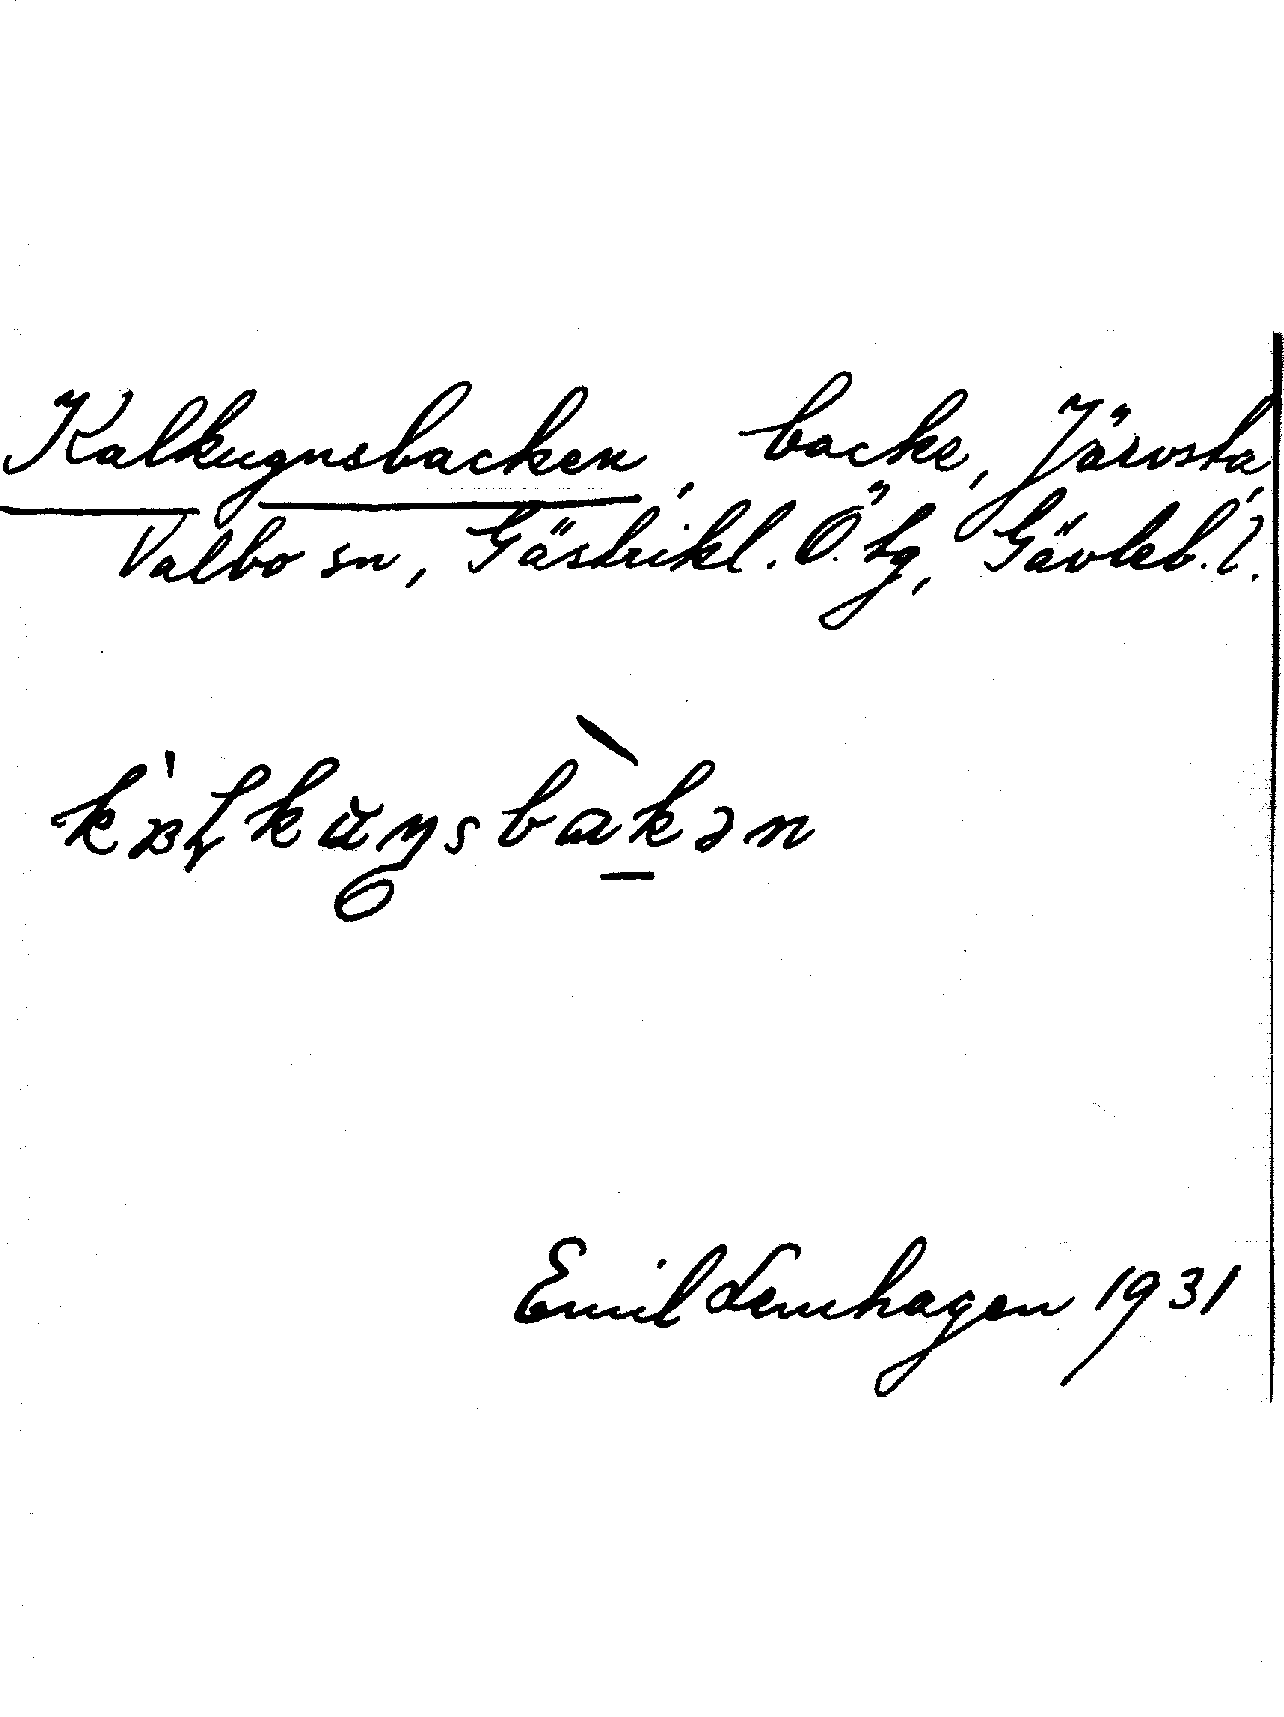 Kalkugnsbacken, backe, Järvsta,
Valbo sn, Gästrikl. Ö. tg, Gävleb. l.
Emil Lenhagen 1931